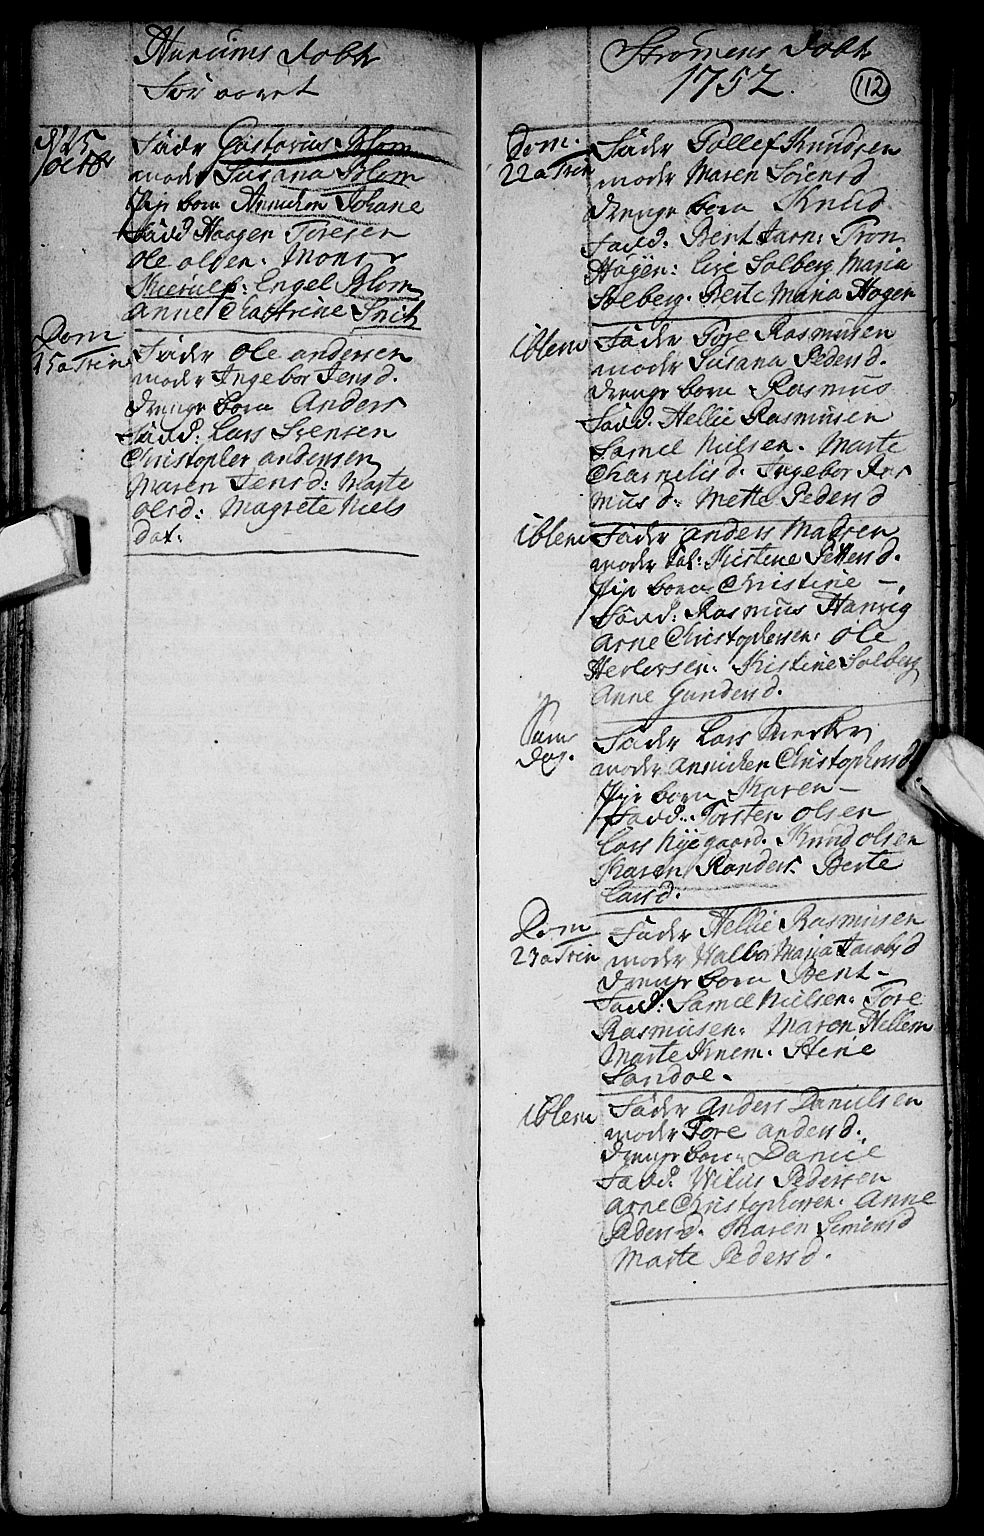 Hurums Døbt
for aaret
d 25 octobr
Fader Gustavius Blom
moder Susana Blom
Pige barn Annichen Johane
Fadd Haagen Toresen
Ole olsen. Mons
Kierulf: Engel Blom
Anne Chattrine Smit
Dom
25 a Trin
Fader Ole andersen
moder Ingebor Jensd.
Drenge barn Anders
Fadd: Lars Svensen
Christopher andersen
Maren Jensd: Marte
olsd: Magrete Niels
dat:
Strømens Døbt
1752.
112
Dom.
22 a Trin
Fader Pollef Knudsen
moder Maren Sørensd
Drenge barn Knud
Fadd. Bent Tron
Høyen: Live Solberg Maria
Solberg. Berte Maria Høgen
ibidem
Fader Tore Rasmusen
moder Susana Pedersd.
Drenge barn Rasmus
Fadd. Hellie Rasmusen
Samel Nielsen. Marte
Charnelisd. Ingebor Ras
musd. Mette Pedersd
ibidem
Fader anders Madsen
moder Kirstine Pettersd.
Pige barn Christine –
Fadd: Rasmus Hansig
Arne Christophersen: Ole
Herlovsen: Kirstine Solberg
Anne Gundersd.
Sam
Dag.
Fader Lars Mørker
moder annichen Christophersd
Pige barn Karen –
Fadd: Torsten olsen
Lars Nyegaard. Knud olsen
Karen Randers. Berte
Larsd.
Dom
23 a Trin
Fader Hellie Rasmusen
moder Halbor Maria Jacobsd
Drenge barn Bent –
Fadd: Samel Nielsen: Tore
Rasmusen: Maren Hellem
Marte Knem. Stene
Sandøe.
ibidem
Fader Anders Danielsen
moder Tore andersd.
Drenge barn Daniel
Fadd: Vitus Pedersen
Arne Christophersen. Anne
Pedersd. Karen Simensd
Marte Pedersd.